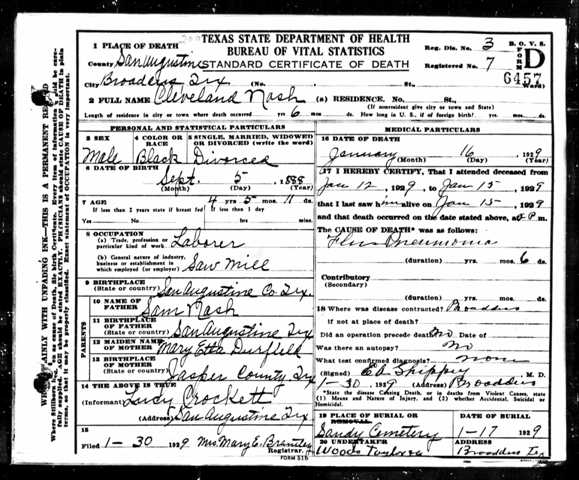 TEXAS STATE DEPARTMENT OF HEALTH
BUREAU OF VITAL STATISTICS
STANDARD CERTIFICATE OF DEATH
Reg. Dis. No. 3
Registered No. 7
B. O. V. S.
FORM D
6457
1 PLACE OF DEATH
County San Augustine
City Broaddus Tex (No. St., Ward)
2 FULL NAME Cleveland Nash (a) RESIDENCE. No. St.,
(If nonresident give city or town and State)
Length of residence in city or town where death occurred yrs. 6 mos. ds. How long in U. S., if of foreign birth? yrs. mos. ds.
PERSONAL AND STATISTICAL PARTICULARS
3 SEX Male
4 COLOR OR RACE Black
5 SINGLE, MARRIED, WIDOWED OR DIVORCED (write the word) Divorced
6 DATE OF BIRTH
Sept. 5 1888
(Month) (Day) (Year)
7 AGE yrs. 5 mos. 11 ds.
If less than 2 years state if breast fed If less than 1 day
8 OCCUPATION
(a) Trade, profession or particular kind of work. Laborer
(b) General nature of industry, business or establishment in which employed (or employer) Saw Mill
9 BIRTHPLACE (State or country) San Augustine Co Tex.
PARENTS
10 NAME OF FATHER Sam Nash
11 BIRTHPLACE OF FATHER (State or country) San Augustine Tex
12 MAIDEN NAME OF MOTHER Mary Etta
13 BIRTHPLACE OF MOTHER (State or country) Jasper County Tex
14 THE ABOVE IS TRUE
(Informant) Lucy Crockett
(Address) San Augustine Tex
15
Filed 1-30 1929 Mrs. Mary E. Brantley
Registrar.
FORM 51b
MEDICAL PARTICULARS
16 DATE OF DEATH
January 16 1929
(Month) (Day) (Year)
17 I HEREBY CERTIFY, That I attended deceased
from Jan 12, 1929 to Jan 15, 1929
that I last saw him alive on Jan 15, 1929
and that death occurred on the date stated above, at P. m.
The CAUSE OF DEATH* was as follows:
Flu Pneumonia
(duration) yrs. mos. 6 ds.
Contributory
(Secondary)
(duration) yrs. mos. ds.
18 Where was disease contracted? Broaddus
if not at place of death?
Did an operation precede death? No Date of
Was there an autopsy? No
What test confirmed diagnosis? none
(Signed) Shippey, M. D.
1-30, 1929 (Address) Broaddus
*State the disease Causing Death, or in deaths from Violent Causes, state (1) Means and Nature of Injury, and (2) whether Accidental, Suicidal or Homicidal.
19 PLACE OF BURIAL OR REMOVAL Sandy Cemetery
DATE OF BURIAL 1-17 1929
20 UNDERTAKER Woods
ADDRESS Broaddus Tex